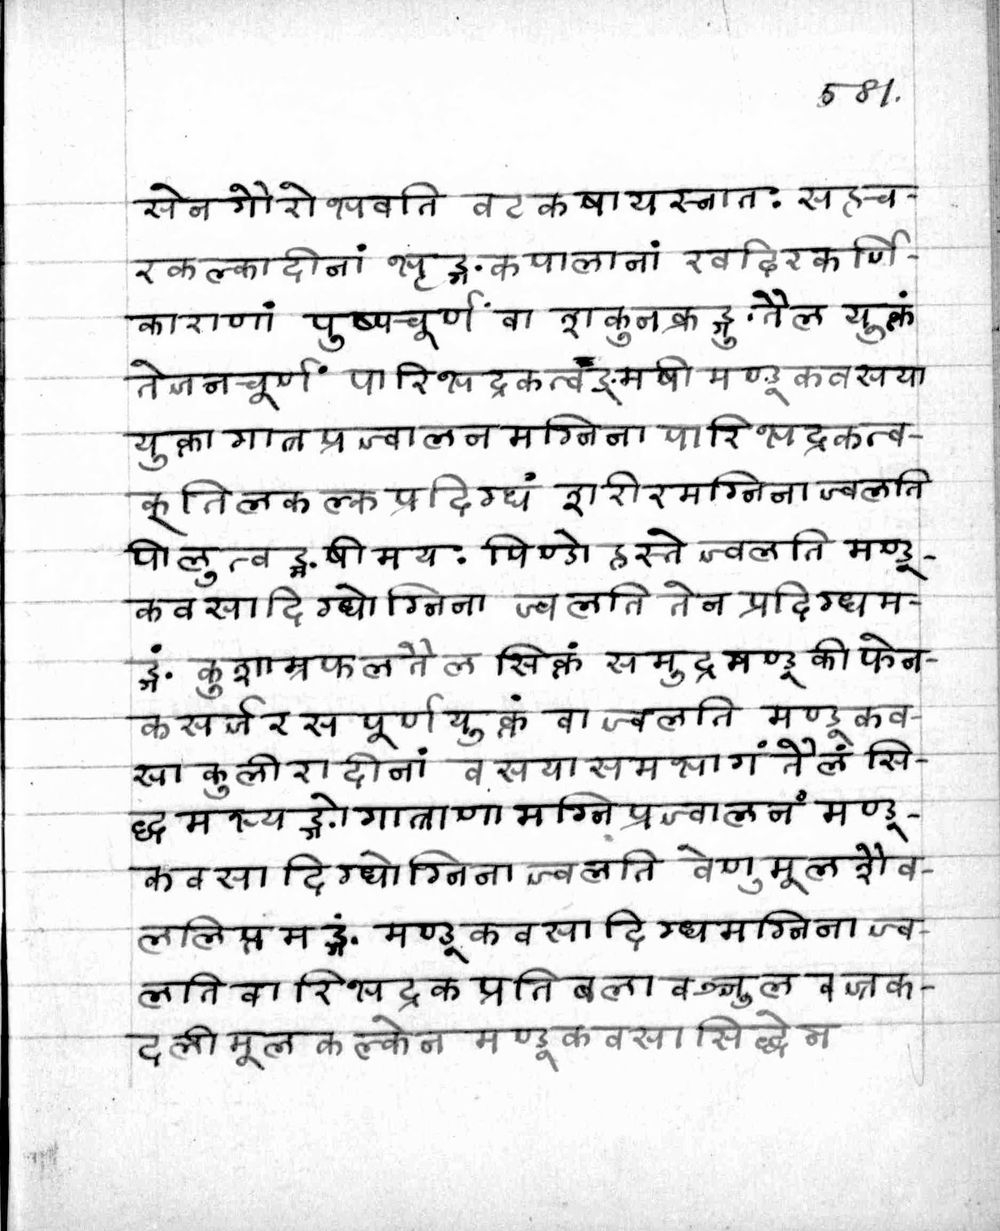 581.
सेन गौरो भवति वटकषायस्नातः सहच-
रकल्कादीनां भृङ्गकपालानां खदिरकर्णि-
काराणां पुष्पचूर्णं वा शकुनकङ्गुतैलयुक्तं
तेजनचूर्णं पारिभद्रकत्वङ्मषी मण्डूकवसया
युक्ता गात्रप्रज्वालनमग्निना पारिभद्रकत्व-
क् तिलकल्कप्रदिग्धं शरीरमग्निना ज्वलति
पीलुत्वङ्मषीमयः पिण्डो हस्ते ज्वलति मण्डू-
कवसादिग्धोग्निना ज्वलति तेन प्रदिग्धम-
ङ्गं कुशाम्रफलतैलसिक्तं समुद्रमण्डूकीफेन-
कसर्जरसपूर्णयुक्तं वा ज्वलति मण्डूकव-
सा कुलीरादीनां वसया समभागं तैलं सि-
द्धमभ्यङ्गो गात्राणामग्निप्रज्वालनं मण्डू-
कवसादिग्धोग्निना ज्वलति वेणुमूलशैव-
ललिप्तमङ्गं मण्डूकवसादिग्धमग्निना ज्व-
लति वारिभद्रक प्रतिबला वञ्जुल वज्रक-
दलीमूलकल्केन मण्डूकवसासिद्धेन